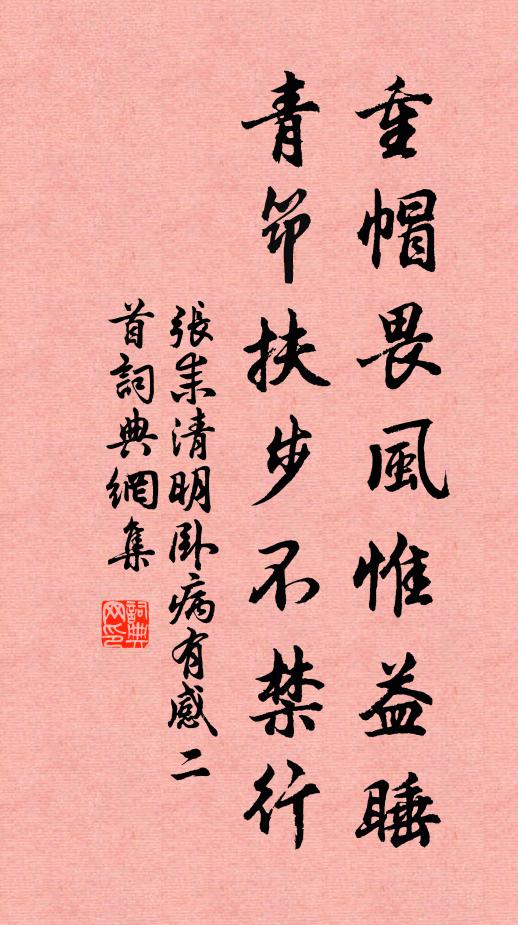 重帽畏風惟益睡
青筇扶步不禁行
張耒清明卧病有感二
首詞典網集
詞典網印